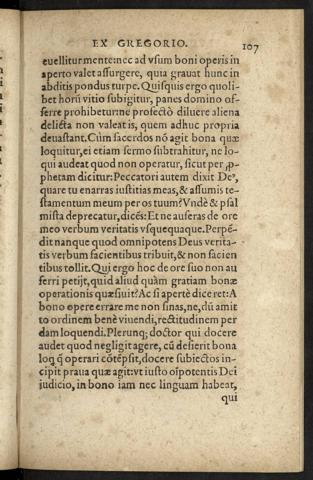 EX GREGORIO. 107
euelliturmente:nec ad vsum boni operis in
aperto valet assurgere, quia grauat hunc in
abditis pondus turpe. Quisquis ergo quoli-
bet horũ vitio subigitur, panes domino of-
ferre prohibetur:ne profectò diluere aliena
delicta non valeat is, quem adhuc propria
deuastant. Cùm sacerdos nõ agit bona quæ
loquitur, ei etiam sermo subtrahitur, ne lo-
qui audeat quod non operatur, sicut per ꝓ-
phetam dicitur: Peccatori autem dixit De⁹,
quare tu enarras iustitias meas, & assumis te-
stamentum meum per os tuum? Vndè & psal
mista deprecatur, dicẽs: Et ne auferas de ore
meo verbum veritatis vsquequaque. Perpẽ-
dit nanque quod omnipotens Deus verita-
tis verbum facientibus tribuit, & non facien
tibus tollit. Qui ergo hoc de ore suo non au
ferri petijt, quid aliud quàm gratiam bonæ
operationis quæsiuit? Ac si apertè diceret: A
bono opere errare me non sinas, ne, dũ amit
to ordinem benè viuendi, rectitudinem per
dam loquendi. Plerunq; doctor qui docere
audet quod negligit agere, cũ desierit bona
loq̃ q̃ operari cõtẽpsit, docere subiectos in-
cipit praua quæ agit: vt iusto oĩpotentis Dei
iudicio, in bono iam nec linguam habeat,
qui